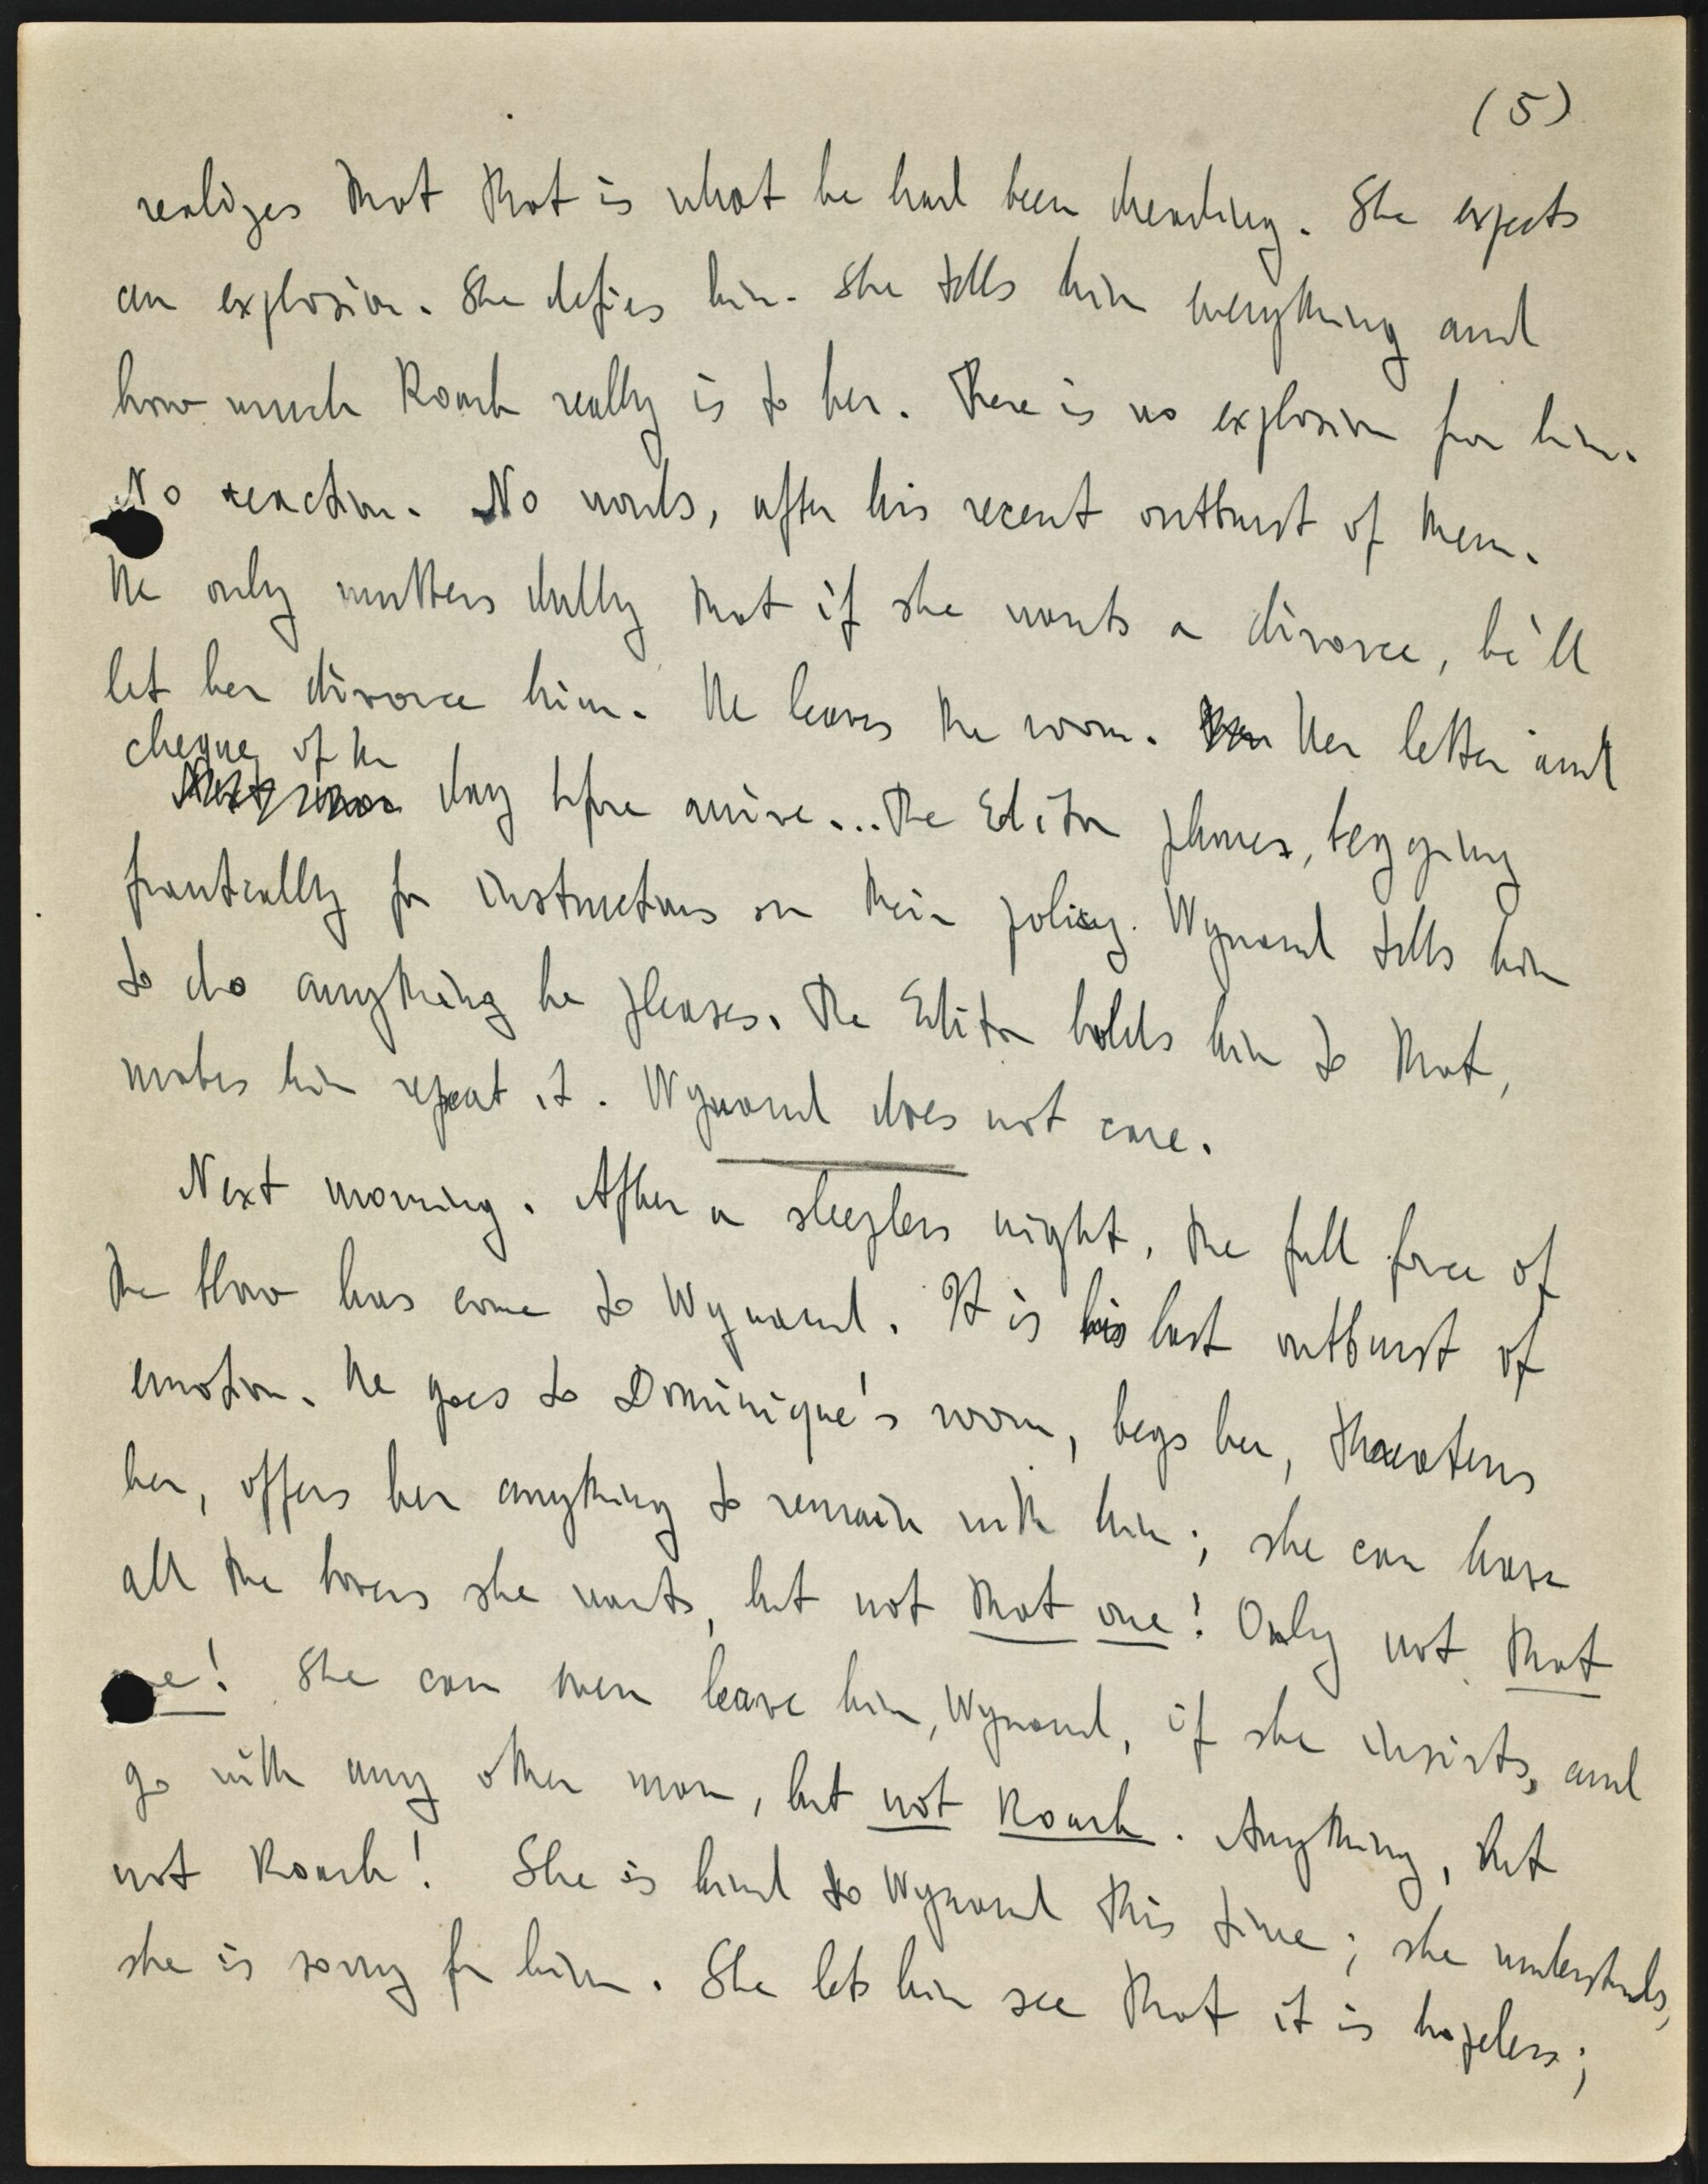 (5)
realizes that that is what he had been dreading. She expects
an explosion. She defies him. She tells him everything and
how much Roark really is to her. There is no explosion from him.
No reaction. No words, after his recent outburst of them.
He only mutters dully that if she wants a divorce, he'll
let her divorce him. He leaves the room. Her letter and
cheque of the
day before arrive... The Editor phones, begging
frantically for instructions on their policy. Wynand tells him
to do anything he pleases. The Editor holds him to that,
makes him repeat it. Wynand does not care.
Next morning. After a sleepless night, the full force of
the blow has come to Wynand. It is his last outburst of
emotion. He goes to Dominique's room, begs her, threatens
her, offers her anything to remain with him; she can have
all the lovers she wants, but not that one! Only not that
one! She can even leave him, Wynand, if she insists, and
go with any other man, but not Roark. Anything, but
not Roark! She is kind to Wynand this time; she understands,
she is sorry for him. She lets him see that it is hopeless;